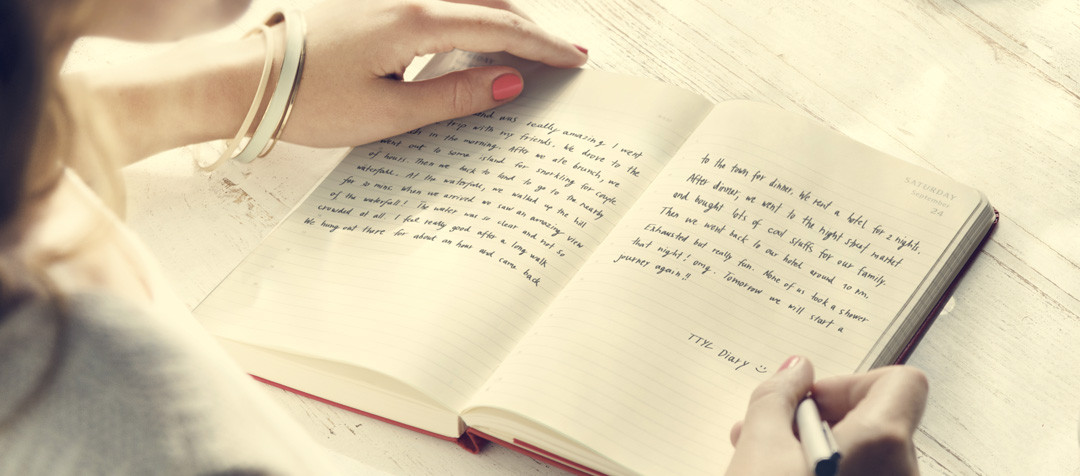 DAY
and was really amazing. I went
trip with my friends. We drove to the
in the morning. After we ate brunch, we
went out to some island for snorkling for couple
of hours. Then we back to land to go to the nearby
waterfall. At the waterfall, we walked up the hill
for 20 mins. When we arrived we saw an amazing view
of the waterfall! The water was so clear and not so
crowded at all. I feel really good after a long walk
We hung out there for about an hour and came back
SATURDAY
September
24
to the town for dinner. We rent a hotel for 2 nights.
After dinner, we went to the night street market
and bought lots of cool stuffs for our family.
Then we went back to our hotel around 10 pm.
Exhausted but really fun. None of us took a shower
that night! omg. Tomorrow we will start a
journey again!!
TTYL Diary :)